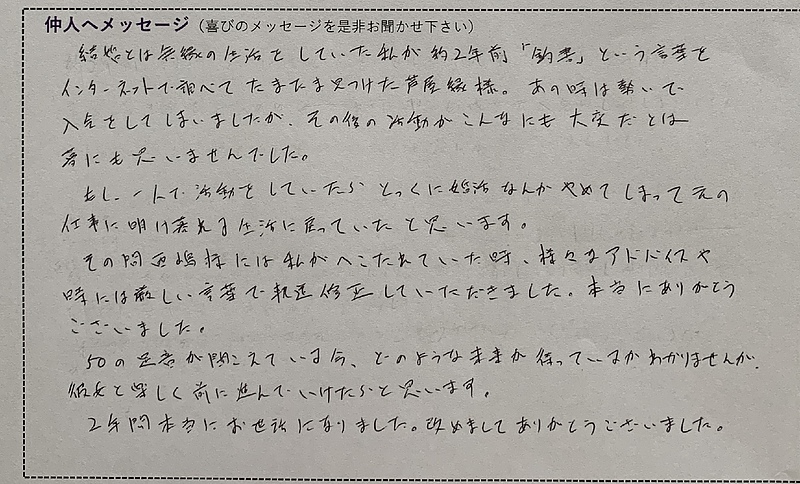 仲人へメッセージ（喜びのメッセージを是非お聞かせ下さい）
結婚とは無縁の生活をしていた私が約2年前「釣書」という言葉を
インターネットで調べてたまたま見つけた芦屋縁様。あの時は勢いで
入会をしてしまいましたが、その後の活動がこんなにも大変だとは
夢にも思いませんでした。
もし、一人で活動をしていたらとっくに婚活なんかやめてしまって元の
仕事に明け暮れる生活に戻っていたと思います。
その間 様には私がへこたれていた時、様々なアドバイスや
時には厳しい言葉で軌道修正していただきました。本当にありがとう
ございました。
50の足音が聞こえている今、どのような未来が待っているかわかりませんが、
彼女と楽しく前に進んでいけたらと思います。
2年間本当にお世話になりました。改めましてありがとうございました。